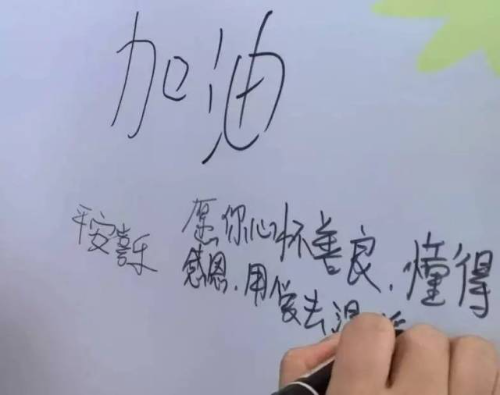 加油
平安喜乐
愿你心怀善良,懂得
感恩.用爱去温